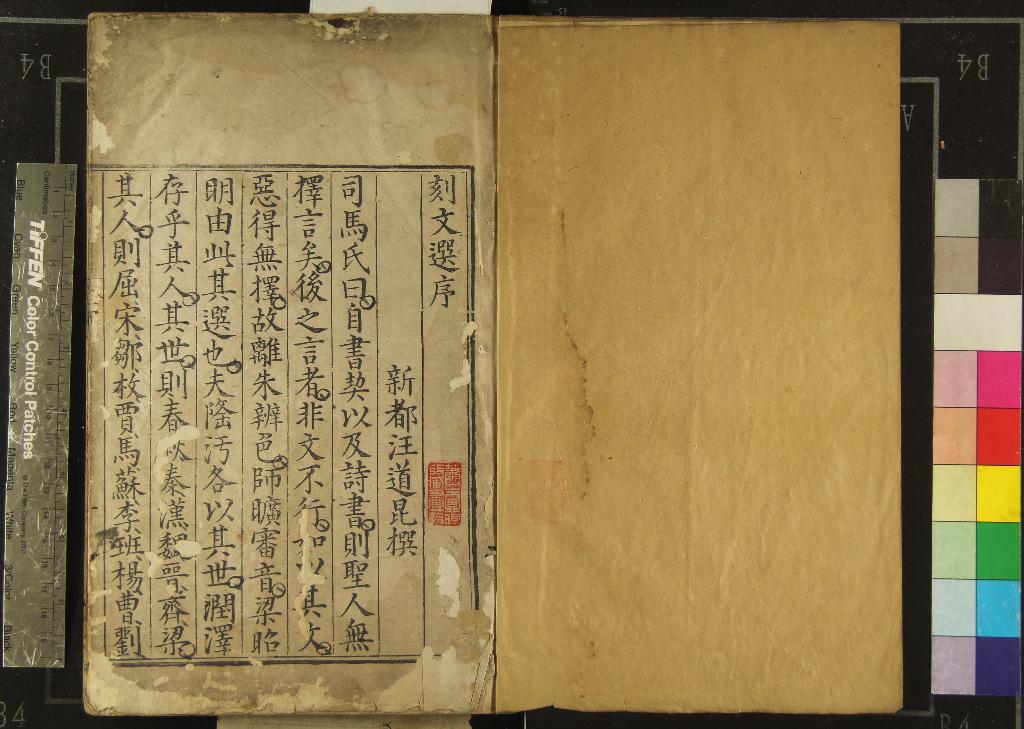 刻文選序
新都汪道昆撰
司馬氏曰自書契以及詩書則聖人無
擇言矣後之言者非文不行如以其文
惡得無擇故離朱辨色師曠審音梁昭
明由此其選也夫隆汚各以其世潤澤
存乎其人其世則春秋秦漢魏晋齊梁
其人則屈宋鄒枚賈馬蘇李班楊曹劉
TIFFEN Color Control Patches
Blue
Cyan
Green
Yellow
Red
Magenta
White
3/Color
Black
Centimetres
B4
B4
A
B4
B4